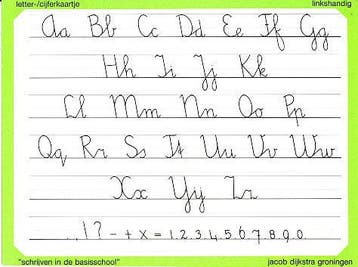 letter-/cijferkaartje linkshandig
Aa Bb Cc Dd Ee Ff Gg
Hh Ii Jj Kk
Ll Mm Nn Oo Pp
Qq Rr Ss Tt Uu Vv Ww
Xx Yy Zz
. , ! ? - + x = 1 2 3 4 5 6 7 8 9 0
"schrijven in de basisschool" jacob dijkstra groningen